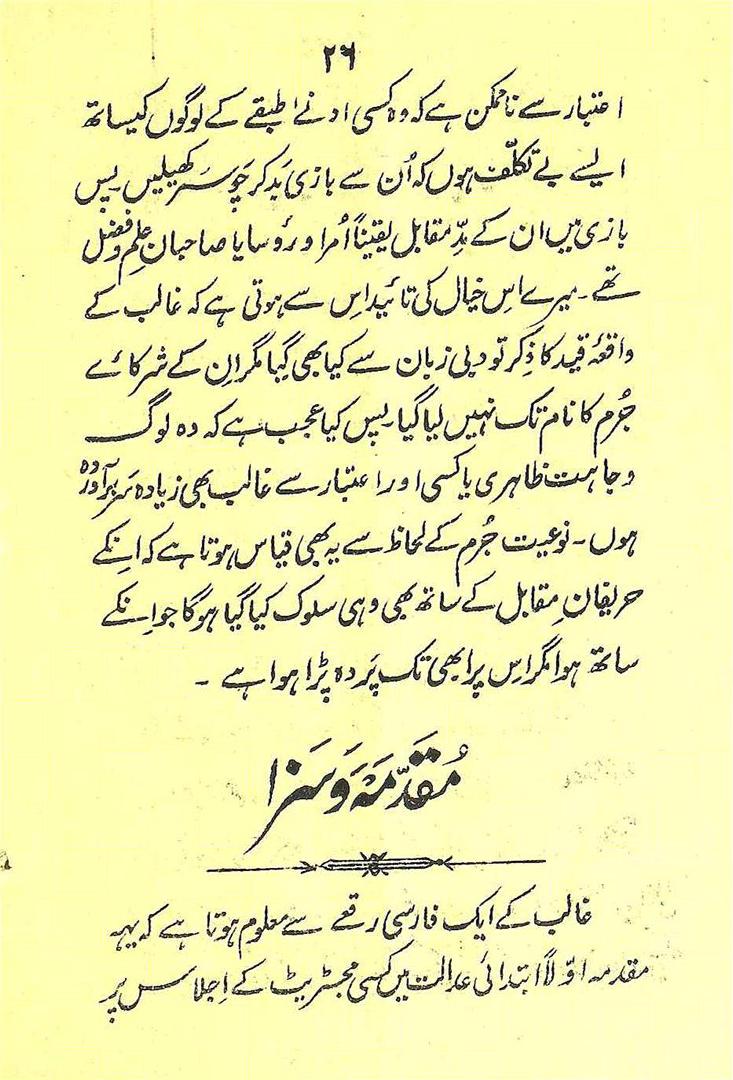 ۲۶
اعتبار سے ناممکن ہے کہ وہ کسی ادنےٰ طبقے کے لوگوں کیساتھ
ایسے بے تکلّف ہوں کہ اُن سے بازی بَد کر چَوسَر کھیلیں۔ پس
بازی میں ان کے مدِّ مقابل یقیناً اُمرا و رؤسا یا صاحبانِ عِلم و فضل
تھے۔ میرے اِس خیال کی تائید اِس سے ہوتی ہے کہ غالب کے
واقعۂ قید کا ذِکر تو دبی زبان سے کیا بھی گیا مگر اِن کے شرکائے
جُرم کا نام تک نہیں لیا گیا۔ پس کیا عجب ہے کہ وہ لوگ
وجاہت ظاہری یا کسی اور اعتبار سے غالب بھی زیادہ سَر بر آوردہ
ہوں۔ نوعیت جُرم کے لحاظ سے یہ بھی قیاس ہوتا ہے کہ اِنکے
حریفانِ مقابل کے ساتھ بھی وہی سلوک کیا گیا ہوگا جو اِنکے
ساتھ ہوا مگر اِس پر ابھی تک پَردہ پڑا ہوا ہے ۔
مُقدّمَہ وَ سَزا
غالب کے ایک فارسی رقعے سے معلوم ہوتا ہے کہ یہہ
مقدمہ اوّلاً ابتدائی عدالت میں کسی مجسٹریٹ کے اِجلاس پر